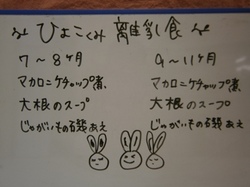 ひよこぐみ 離乳食
7～8ヶ月
マカロニケチャップ煮
大根のスープ
じゃがいもの磯あえ
9～11ヶ月
マカロニケチャップ煮
大根のスープ
じゃがいもの磯あえ